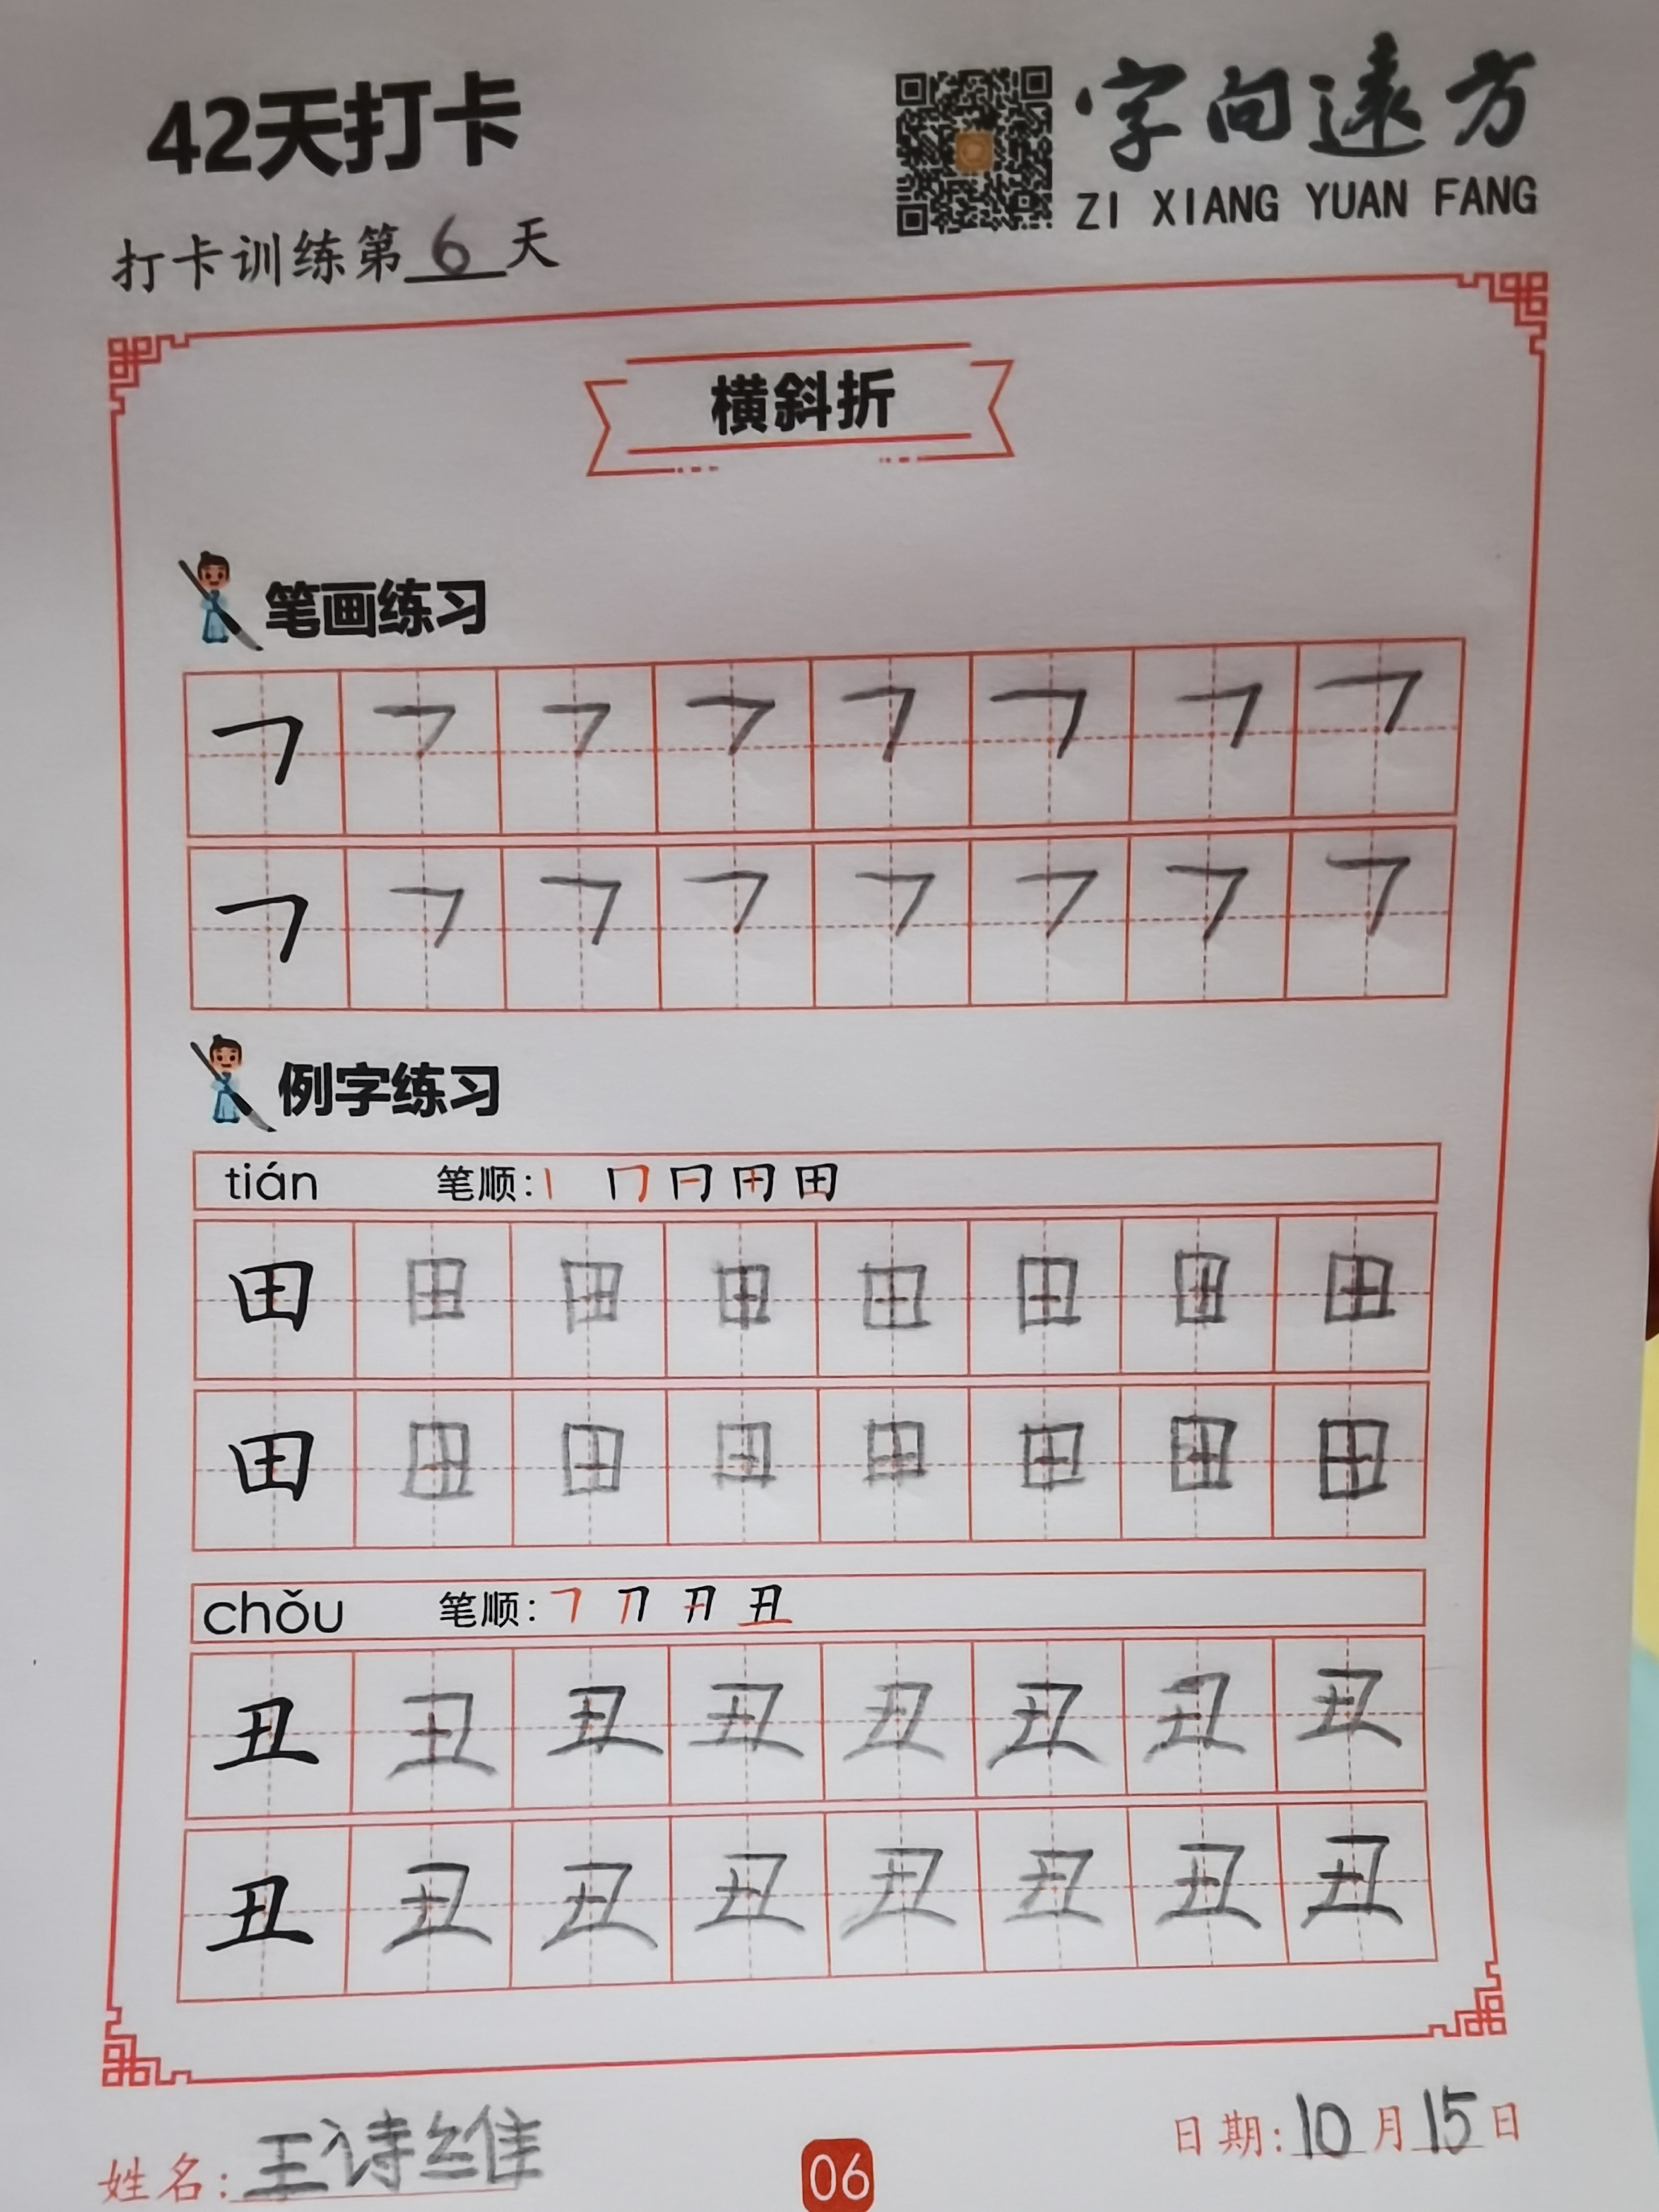 42天打卡
字向遠方
ZI XIANG YUAN FANG
打卡训练第6天
横斜折
笔画练习
㇕ ㇕ ㇕ ㇕ ㇕ ㇕ ㇕ ㇕
㇕ ㇕ ㇕ ㇕ ㇕ ㇕ ㇕ ㇕
例字练习
tián 笔顺:丨 冂 日 田 田
田 田 田 田 田 田 田 田
田 田 田 田 田 田 田 田
chǒu 笔顺:㇕ 刀 丑 丑
丑 丑 丑 丑 丑 丑 丑 丑
丑 丑 丑 丑 丑 丑 丑 丑
姓名:王诗维
06
日期:10月15日